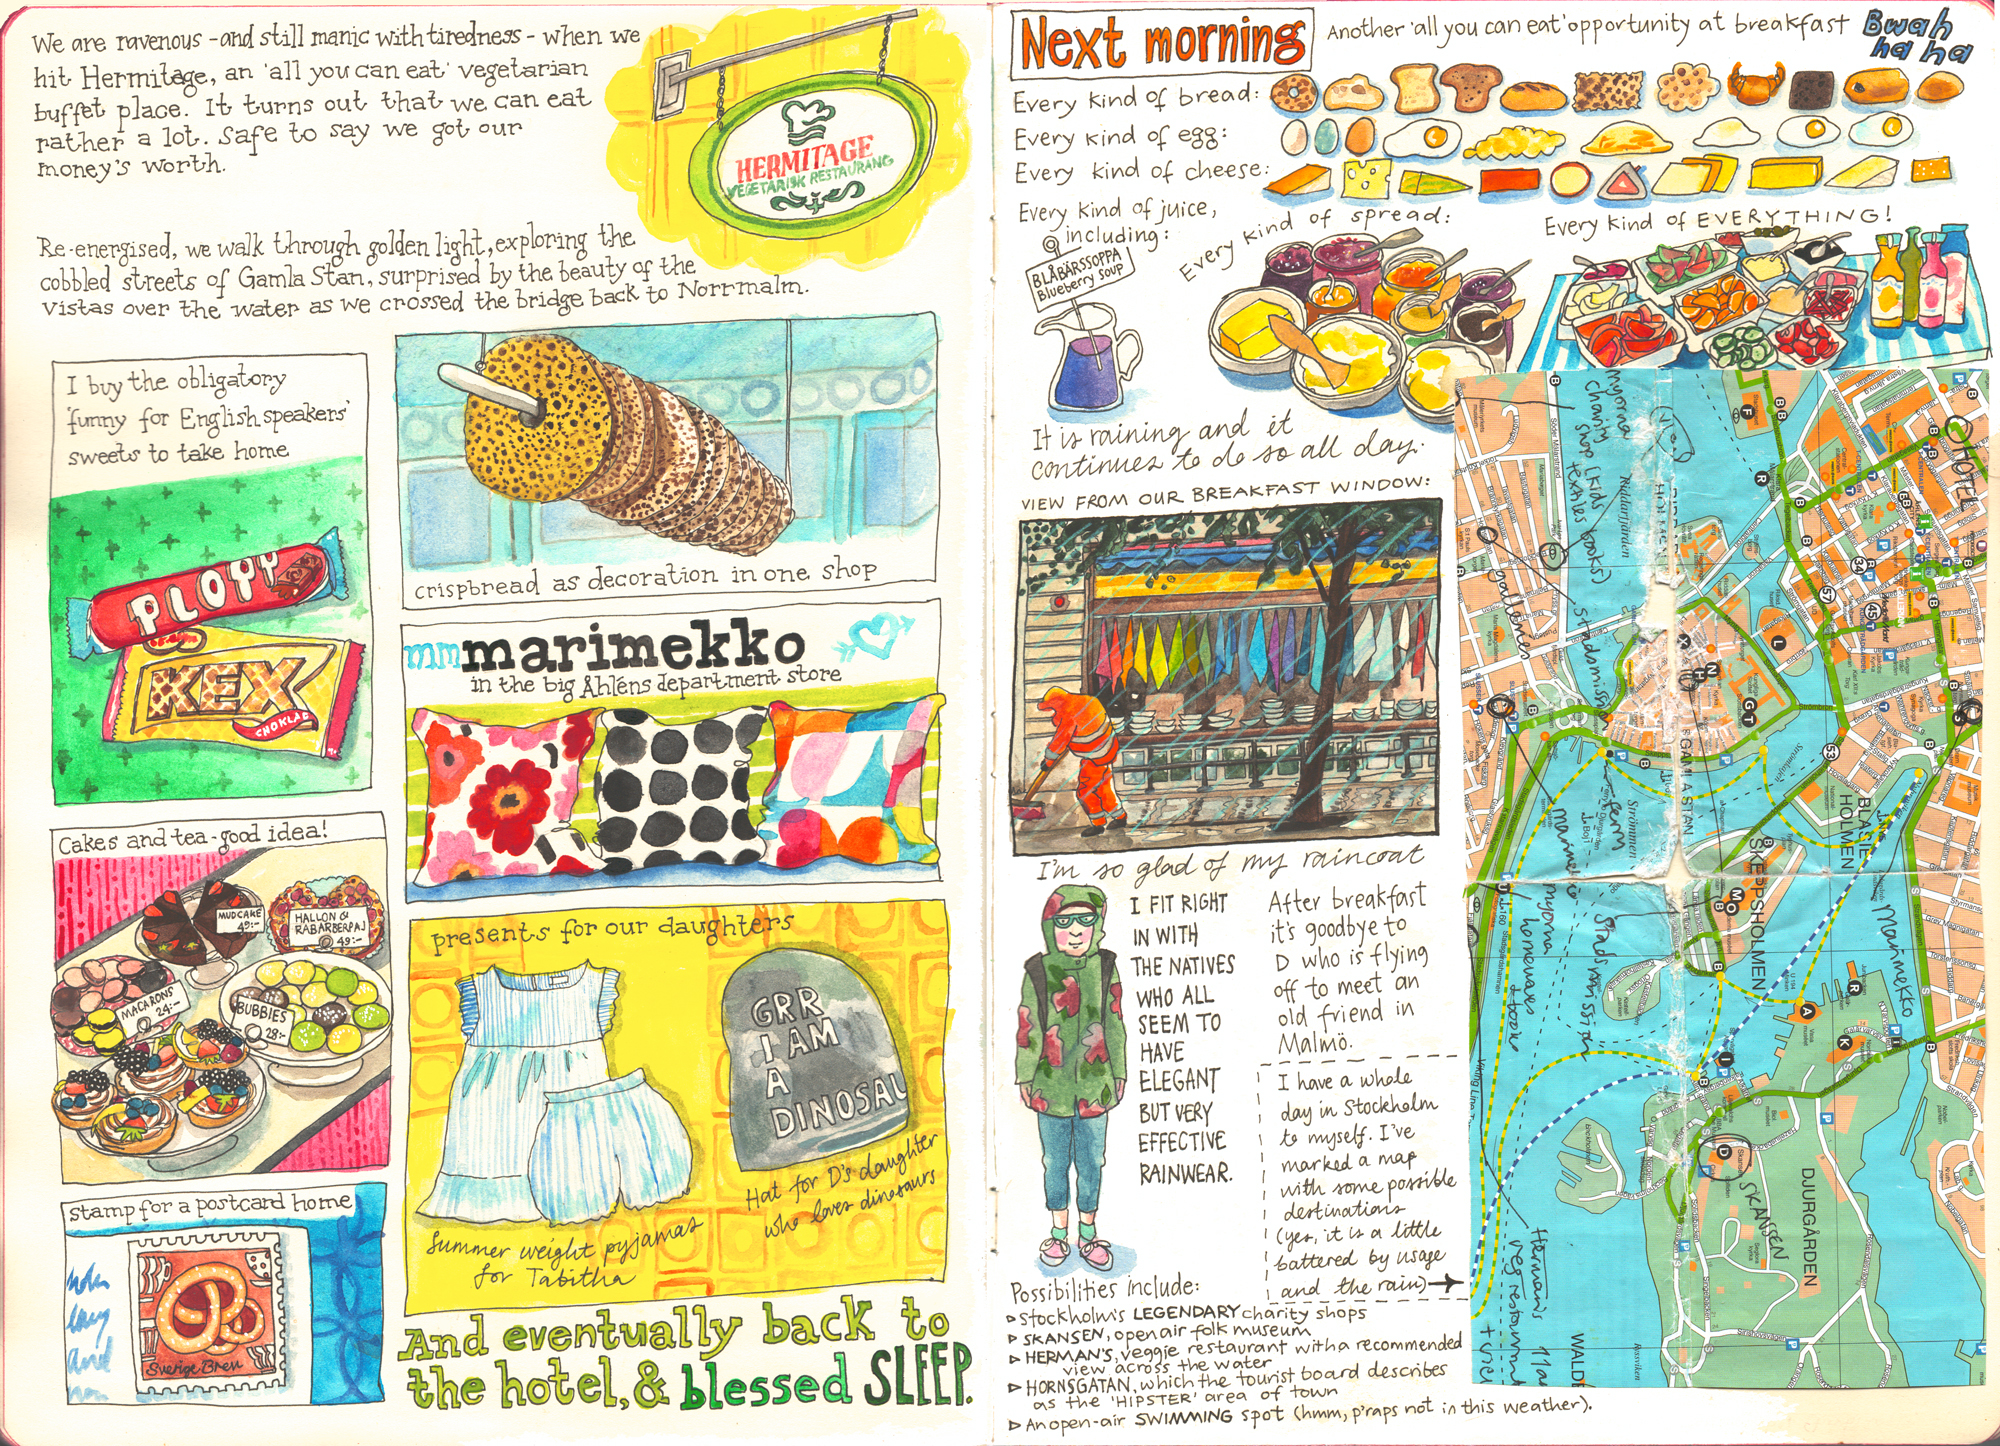 We are ravenous - and still manic with tiredness - when we
hit Hermitage, an 'all you can eat' vegetarian
buffet place. It turns out that we can eat
rather a lot. Safe to say we got our
money's worth.
HERMITAGE
VEGETARISK RESTAURANG
Re-energised, we walk through golden light, exploring the
cobbled streets of Gamla Stan, surprised by the beauty of the
vistas over the water as we crossed the bridge back to Norrmalm.
I buy the obligatory
'funny for English speakers'
sweets to take home
PLOPP
KEX
CHOKLAD
crispbread as decoration in one shop
mmmarimekko
in the big Åhléns department store
Cakes and tea - good idea!
MUDCAKE
49:-
HALLON &
RABARBERPAJ
49:-
MACARONS
24:-
BUBBIES
28:-
presents for our daughters
GRR
I AM
A
DINOSAU
Summer weight pyjamas
for Tabitha
Hat for D's daughter
who loves dinosaurs
Stamp for a postcard home
Sverige Brev
And eventually back to
the hotel, & blessed SLEEP.
Next morning
Another 'all you can eat' opportunity at breakfast
Bwah
ha ha
Every kind of bread:
Every kind of egg:
Every kind of cheese:
Every kind of juice,
including:
BLÅBÄRSSOPPA
Blueberry Soup
Every kind of spread:
Every kind of EVERYTHING!
It is raining and it
continues to do so all day.
VIEW FROM OUR BREAKFAST WINDOW:
I'm so glad of my raincoat
I FIT RIGHT
IN WITH
THE NATIVES
WHO ALL
SEEM TO
HAVE
ELEGANT
BUT VERY
EFFECTIVE
RAINWEAR.
After breakfast
it's goodbye to
D who is flying
off to meet an
old friend in
Malmö.
I have a whole
day in Stockholm
to myself. I've
marked a map
with some possible
destinations
(yes, it is a little
battered by usage
and the rain)
Possibilities include:
Stockholm's LEGENDARY charity shops
SKANSEN, open air folk museum
HERMAN'S, veggie restaurant with a recommended
view across the water
HORNSGATAN, which the tourist board describes
as the 'HIPSTER' area of town
An open-air SWIMMING spot (hmm, p'raps not in this weather).
myorna
charity
shop (kids
textiles books)
HOTEL
Riddarfjärden
stadsmission
GAMLA STAN
Strömmen
marimekko
myorna
homewares
store
Stadsmission
BLASIE
HOLMEN
SKEPPSHOLMEN
Marimekko
SKANSEN
DJURGÅRDEN
Herman's
veg restaurant
Viking Line